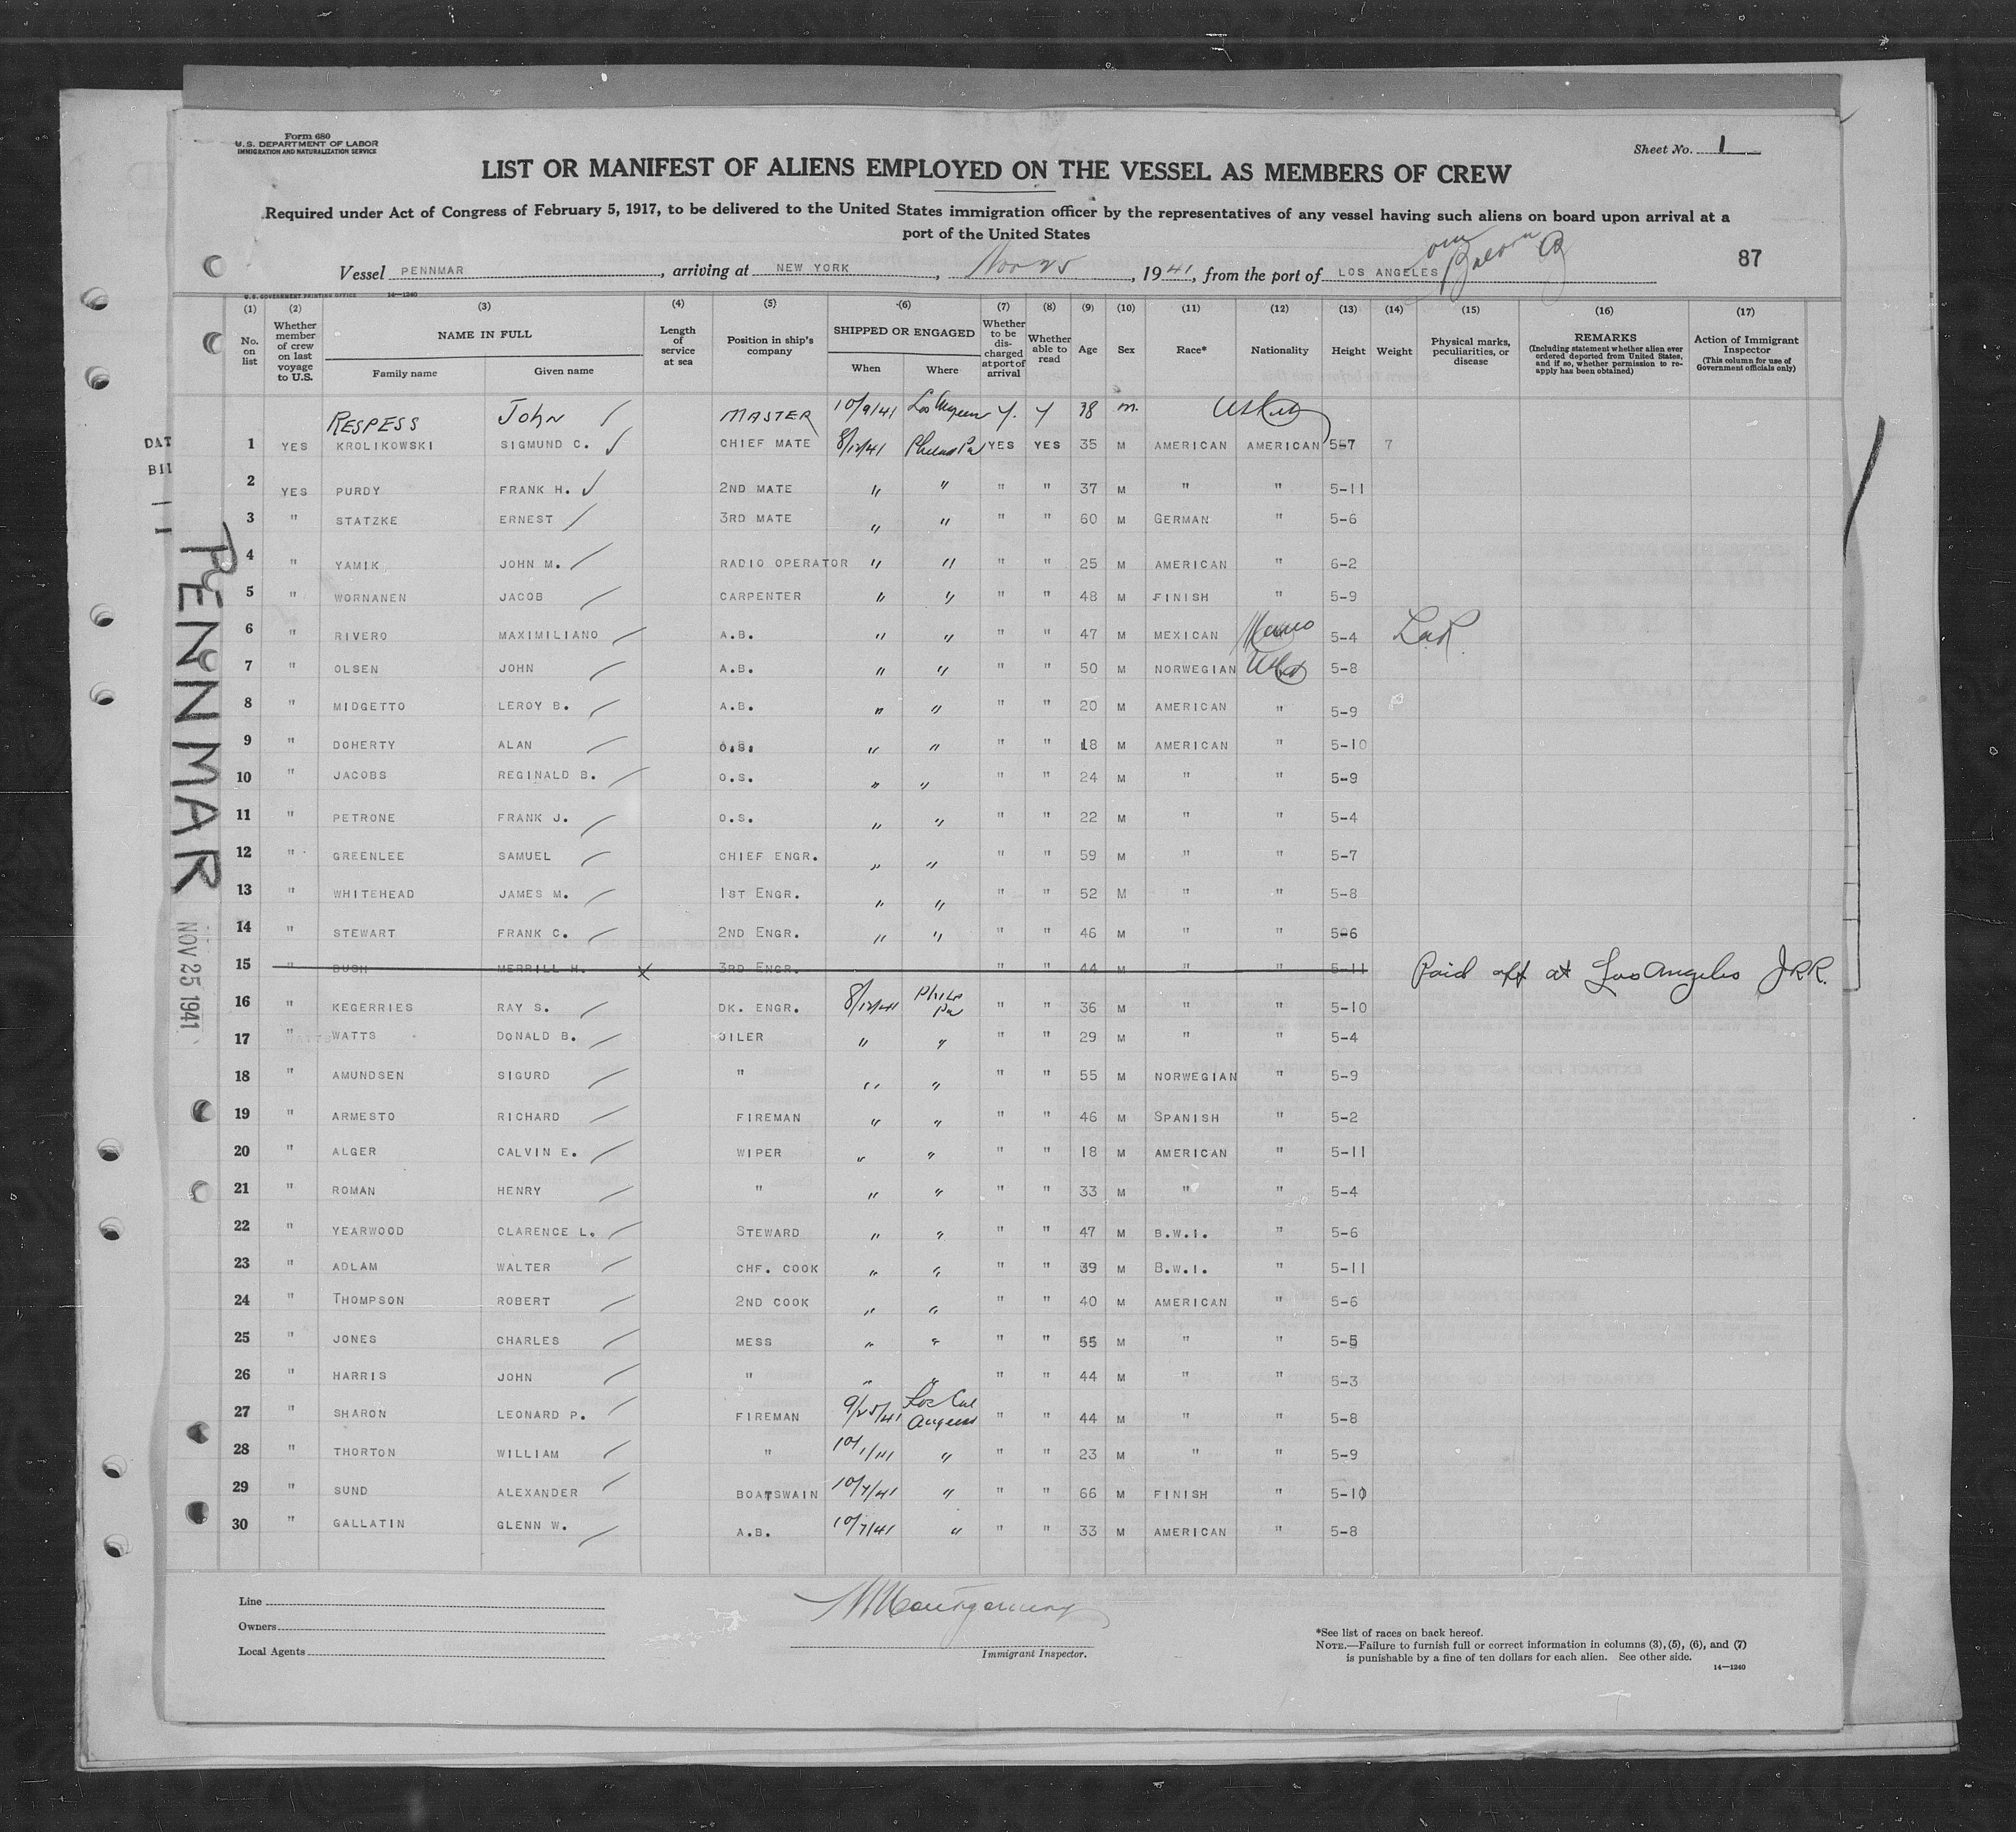 Form 680
U.S. DEPARTMENT OF LABOR
IMMIGRATION AND NATURALIZATION SERVICE
Sheet No. 1
LIST OR MANIFEST OF ALIENS EMPLOYED ON THE VESSEL AS MEMBERS OF CREW
Required under Act of Congress of February 5, 1917, to be delivered to the United States immigration officer by the representatives of any vessel having such aliens on board upon arrival at a
port of the United States
87
Vessel PENNMAR, arriving at NEW YORK, Nov 25, 1941, from the port of LOS ANGELES
U.S. GOVERNMENT PRINTING OFFICE 14—1240
(1) (2) (3) (4) (5) (6) (7) (8) (9) (10) (11) (12) (13) (14) (15) (16) (17)
No. on list
Whether member of crew on last voyage to U.S.
NAME IN FULL
Family name Given name
Length of service at sea
Position in ship's company
SHIPPED OR ENGAGED
When Where
Whether to be discharged at port of arrival
Whether able to read
Age Sex Race* Nationality Height Weight
Physical marks, peculiarities, or disease
REMARKS
(Including statement whether alien ever ordered deported from United States, and if so, whether permission to reapply has been obtained)
Action of Immigrant Inspector
(This column for use of Government officials only)
RESPESS John MASTER 10/9/41 Los Angeles Y. Y 38 m.
1 YES KROLIKOWSKI SIGMUND C. CHIEF MATE 8/12/41 Phila Pa YES YES 35 M AMERICAN AMERICAN 5-7 7
2 YES PURDY FRANK H. 2ND MATE " " " " 37 M " " 5-11
3 " STATZKE ERNEST 3RD MATE " " " " 60 M GERMAN " 5-6
4 " YAMIK JOHN M. RADIO OPERATOR " " " " 25 M AMERICAN " 6-2
5 " WORNANEN JACOB CARPENTER " " " " 48 M FINISH " 5-9
6 " RIVERO MAXIMILIANO A.B. " " " " 47 M MEXICAN 5-4
7 " OLSEN JOHN A.B. " " " " 50 M NORWEGIAN 5-8
8 " MIDGETTO LEROY B. A.B. " " " " 20 M AMERICAN " 5-9
9 " DOHERTY ALAN O.S. " " " " 18 M AMERICAN " 5-10
10 " JACOBS REGINALD B. O.S. " " " " 24 M " " 5-9
11 " PETRONE FRANK J. O.S. " " " " 22 M " " 5-4
12 " GREENLEE SAMUEL CHIEF ENGR. " " " " 59 M " " 5-7
13 " WHITEHEAD JAMES M. 1ST ENGR. " " " " 52 M " " 5-8
14 " STEWART FRANK C. 2ND ENGR. " " " " 46 M " " 5-6
15 " BUSH MERRILL H. X 3RD ENGR. " " 44 M " " 5-11 Paid off at Los Angeles JRR.
16 " KEGERRIES RAY S. DK. ENGR. 8/12/41 Phila Pa " " 36 M " " 5-10
17 " WATTS DONALD B. OILER " " " " 29 M " " 5-4
18 " AMUNDSEN SIGURD " " " " " 55 M NORWEGIAN " 5-9
19 " ARMESTO RICHARD FIREMAN " " " " 46 M SPANISH " 5-2
20 " ALGER CALVIN E. WIPER " " " " 18 M AMERICAN " 5-11
21 " ROMAN HENRY " " " " " 33 M " " 5-4
22 " YEARWOOD CLARENCE L. STEWARD " " " " 47 M B.W.I. " 5-6
23 " ADLAM WALTER CHF. COOK " " " " 39 M B.W.I. " 5-11
24 " THOMPSON ROBERT 2ND COOK " " " " 40 M AMERICAN " 5-6
25 " JONES CHARLES MESS " " " " 55 M " " 5-5
26 " HARRIS JOHN " " " " " 44 M " " 5-3
27 " SHARON LEONARD P. FIREMAN 9/25/41 Los Angeles Cal " " 44 M " " 5-8
28 " THORTON WILLIAM " 10/1/41 " " " 23 M " " 5-9
29 " SUND ALEXANDER BOATSWAIN 10/7/41 " " " 66 M FINISH " 5-10
30 " GALLATIN GLENN W. A.B. 10/7/41 " " " 33 M AMERICAN " 5-8
PENNMAR
NOV 25 1941
DAT
BIL
Line
Owners
Local Agents
Immigrant Inspector.
*See list of races on back hereof.
NOTE.—Failure to furnish full or correct information in columns (3), (5), (6), and (7)
is punishable by a fine of ten dollars for each alien. See other side.
14—1240